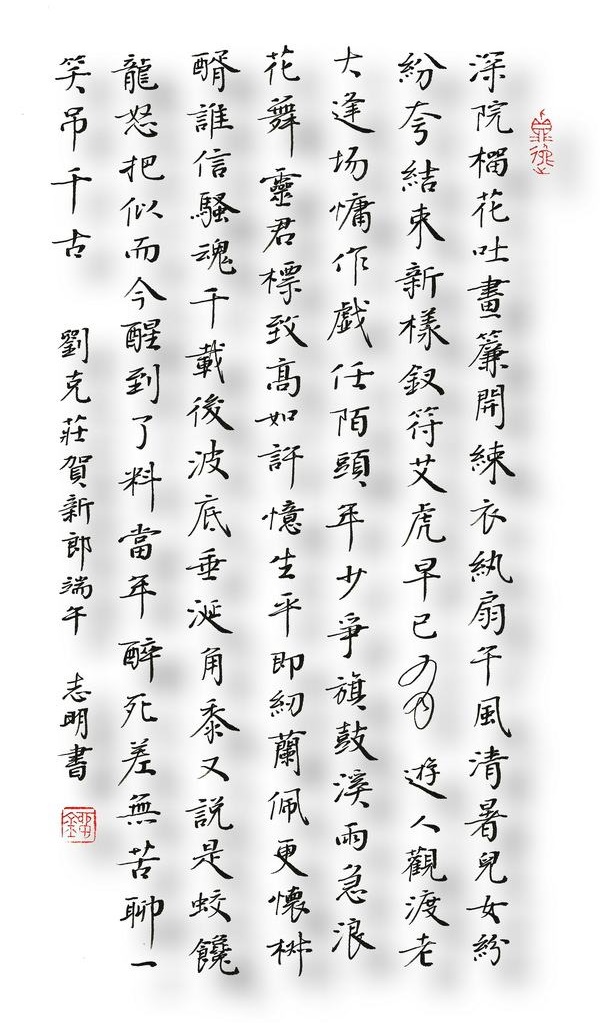 深院榴花吐畫簾開練衣紈扇午風清暑兒女紛
紛夸結束新樣釵符艾虎早已有遊人觀渡老
大逢场慵作戲任陌頭年少爭旗鼓溪雨急浪
花舞靈君標致高如許憶生平即紉蘭佩更懷椒
醑誰信騷魂千載後波底垂涎角黍又說是蛟饞
龍怒把似而今醒到了料當年醉死差無苦聊一
笑吊千古 劉克莊賀新郎端午 志明書